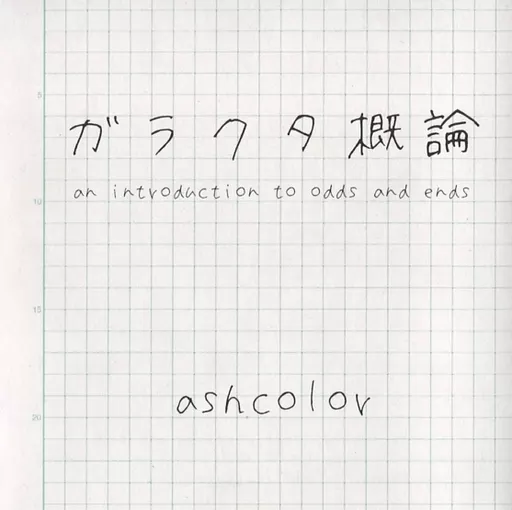 ガラクタ概論
an introduction to odds and ends
ashcolor
5
10
15
20